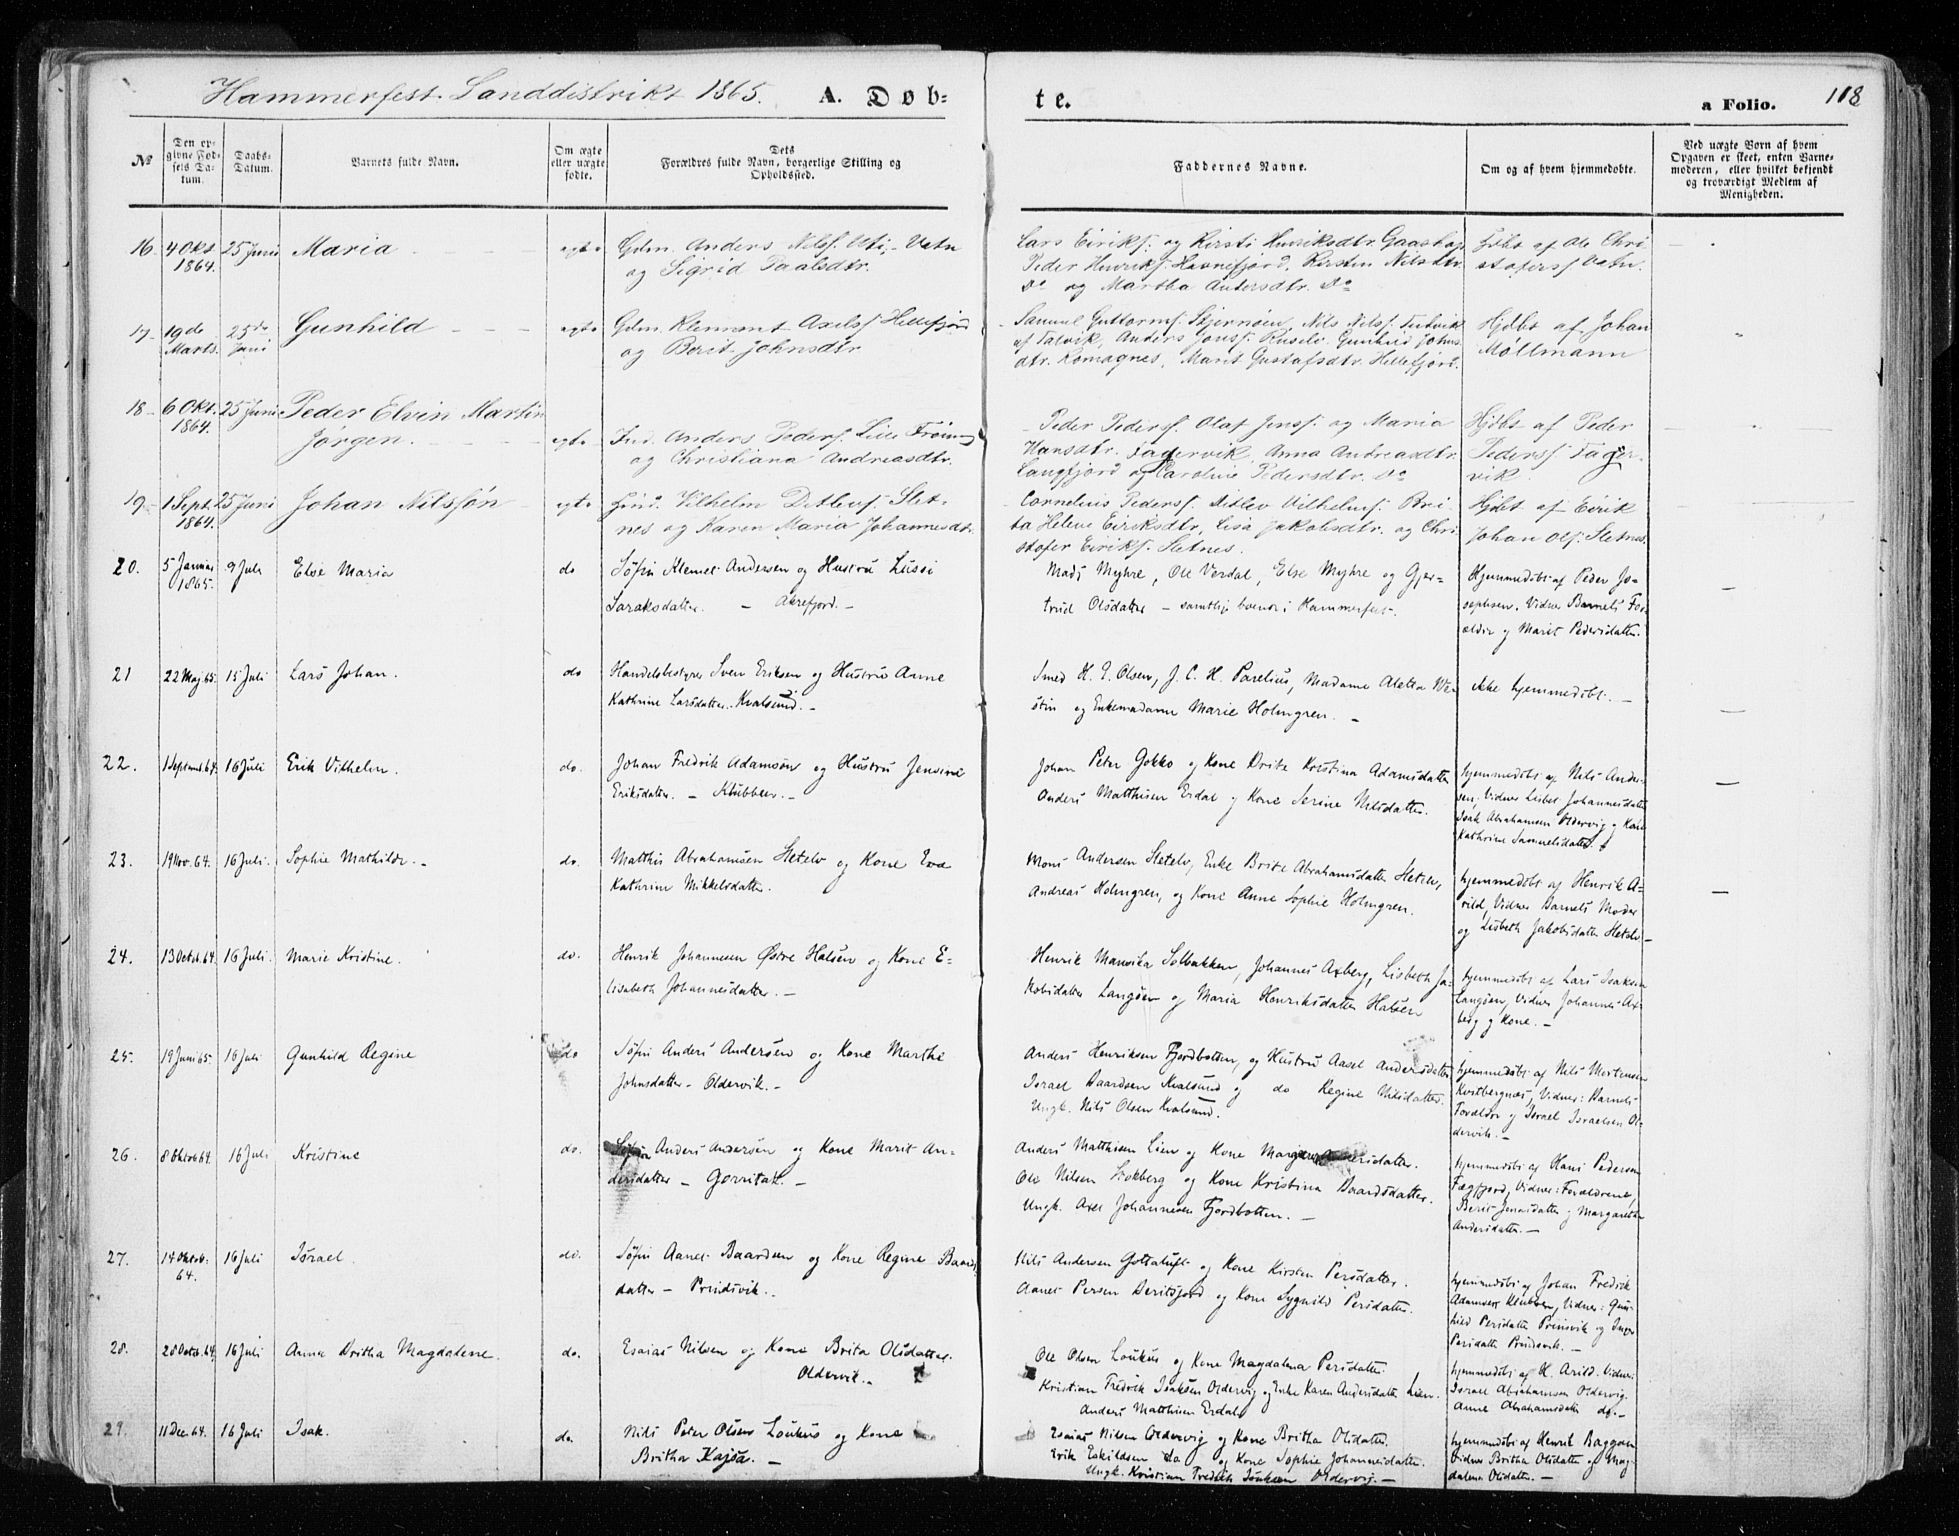 Hammerfest Landdistrikt 1865. A. Døb-
te.
a Folio. 118
No
Den op-
givne Fød-
sels Da-
tum.
Daabs-
Datum.
Barnets fulde Navn.
Om ægte
eller uægte
fødte.
Dets
Forældres fulde Navn, borgerlige Stilling og
Opholdssted.
Faddernes Navne.
Om og af hvem hjemmedøbt.
Ved uægte Børn af hvem
Opgaven er skeet, enten Barne-
moderen, eller hvilket bekjendt
og troværdigt Medlem af
Menigheden.
16 4 Okt 25 Juni Maria ægte Gdm. Anders Nilsf. Vatn
1864. og Sigrid Paalsdtr.
Lars Eirikf. og Kirsti Henriksdtr.
Peder Henrikf. Kirsten Nilsdtr.
Do og Martha Andersdtr. Do
Hjdbt af Ole Chri
stofersf Vatn.
17 19de 25de Gunhild ægte Gdm. Klement Axelsf. Hillefjord
Marts. Juni og Berit Johnsdtr
Samuel Guttormsf. Stjernøen, Nils Nilsf.
af Talvik, Anders Jonsf. Gunhild Johns
dtr. Komagnes, Marit Gustafsdtr. Hillefjord.
Hjdbt af Johan
Møllmann
18 6 Okt. 25 Juni Peder Elvin Martin
1864. Jørgen. ægte Ind. Anders Pedersf. Lille
og Christiana Andreasdtr.
Peder Pedersf. Olaf Jensf. og Maria
Hansdtr. Fagervik, Anna Andreasdtr.
Langfjord og Caroline Pedersdtr. Do
Hjdbt af Peder
Pedersf Fager-
vik.
19 1 Sept. 25 Juni Johan Nilssøn ægte Vilhelm Ditlevf. Slet-
1864. nes og Karen Maria Johannesdtr.
Cornelius Pedersf. Ditlev Vilhelmsf. Bri-
ta Helene Eiriksdtr, Lisa Jakobsdtr. og Chri
stofer Eirikf. Sletnes.
Hjdbt af Eirik
Johan Olsf. Sletnes.
20. 5 Januar 9 Juli Else Maria do Søfin Klemet Andersen og Hustru Lussi
1865. Saraksdatter. — Akrefjord. —
Mads Myhre, Ole Verdal, Else Myhre og Gjer-
trud Olsdatter — samtlige boende i Hammerfest.
Hjemmedøbt af Peder Jo-
sephsen. Vidner Barnets For-
ældre og Marit Pedersdatter.
21 22 Maj 65. 15 Juli Lars Johan. do Handelsbestyrer Sven Eriksen og Hustru Anne
Kathrine Larsdatter. Kvalsund. —
Smed H. E. Olsen, J. C. H. Parelius, Madame Aletta We-
stin og Enkemadame Marie Holmgren. —
ikke hjemmedøbt. —
22. 1 Septemb. 64. 16 Juli Erik Vilhelm. do. Johan Fredrik Adamsøn og Hustru Jensine
Eriksdatter. — Klubben. —
Johan Peter Gokko og Kone Brite Kristina Adamsdatter
Anders Matthisen Erdal og Kone Serine Nilsdatter.
hjemmedøbt af Nils Ander-
sen, Vidner Lisbet Johannesdatter
Isak Abrahamsen Oldervig og Kone
Kathrine Samuelsdatter.
23. 19 Nov. 64. 16 Juli. Sophie Mathilde. — do. Matthis Abrahamsen Sletelv og Kone Eva
Kathrine Mikkelsdatter.
Mons Andersen Sletelv, Enke Brite Abrahamsdatter Sletelv,
Andreas Holmgren, og Kone Anne Sophie Holmgren.
hjemmedøbt af Henrik A-
rild, Vidner Barnets Moder
og Lisbeth Jakobsdatter Sletelv —
24. 13 Octob. 64. 16 Juli. Marie Kristine. do. Henrik Johannesen Østre Halsen og Kone E-
lisabeth Johannesdatter. —
Henrik Mansika Solbakken, Johannes Axberg, Lisbeth Ja-
kobsdatter Langøen og Maria Henriksdatter Halsen
hjemmedøbt af Lars Isaksen
Langøen, Vidner Johannes Ax-
berg og Kone. —
25. 19 Juni 65. 16 Juli Gunhild Regine do Søfin Anders Andersen og Kone Marthe
Johnsdatter — Oldervik. —
Anders Henriksen Fjordbotten, og Hustru Aasel Andersdatter
Israel Baardsen Kvalsund og do Regine Nilsdatter.
Ungk. Nils Olsen Kvalsund.
hjemmedøbt af Nils Mortensen
Kvitbergnæs, Vidner: Barnets
Forældre og Israel Israelsen Ol-
dervik. —
26. 8 Oktob 64. 16 Juli Kristine do. Søfin Anders Andersen og Kone Marit An-
dersdatter — Gorritak. —
Anders Matthisen Lien og Kone Andersdatter.
Ole Nilsen Stokberg og Kone Kristina Baardsdatter.
Ungk. Axel Johannesen Fjordbotten. —
hjemmedøbt af Hans Pedersen
Fægfjord, Vidner: Forældrene,
Berit Jensdatter og Margarethe
Andersdatter. —
27. 14 Oktob. 16 Juli Israel do. Søfin Aanet Baardsen og Kone Regine Baards
64. datter — Prindsvik.
Nils Andersen Gottaluft og Kone Kirsten Persdatter.
Aanet Persen Beritsjord og Kone Sygnild Persdatter.
hjemmedøbt af Johan Fredrik
Adamsen Klubben, Vidner: Gun-
hild Persdatter Prinsvik og Inger
Persdatter Prindsvik. —
28. 28 Octob. 64. 16 Juli Anne Britha Magdalene. do. Esaias Nilsen og Kone Brita Olsdatter.
Oldervik. —
Ole Olsen Loukus og Kone Magdalena Persdatter.
Kristian Fredrik Isaksen Oldervig og Enke Karen Andersdatter Lien.
Anders Matthisen Erdal
hjemmedøbt af H. Arild. Vidner:
Israel Abrahamsen Oldervig.
Anne Abrahamsdatter do. —
29. 11 Dec. 64. 16 Juli Isak. do. Nils Peter Olsen Loukus og Kone
Britha Kajsa. —
Esaias Nilsen Oldervig og Kone Britha Olsdatter.
Erik Eskildsen do og Kone Sophie Johannesdatter.
Ungk. Kristian Fredrik Isaksen Oldervig. —
hjemmedøbt af Henrik Baggan
Vidner Britha Olsdatter og Mag-
dalena Olsdatter. —